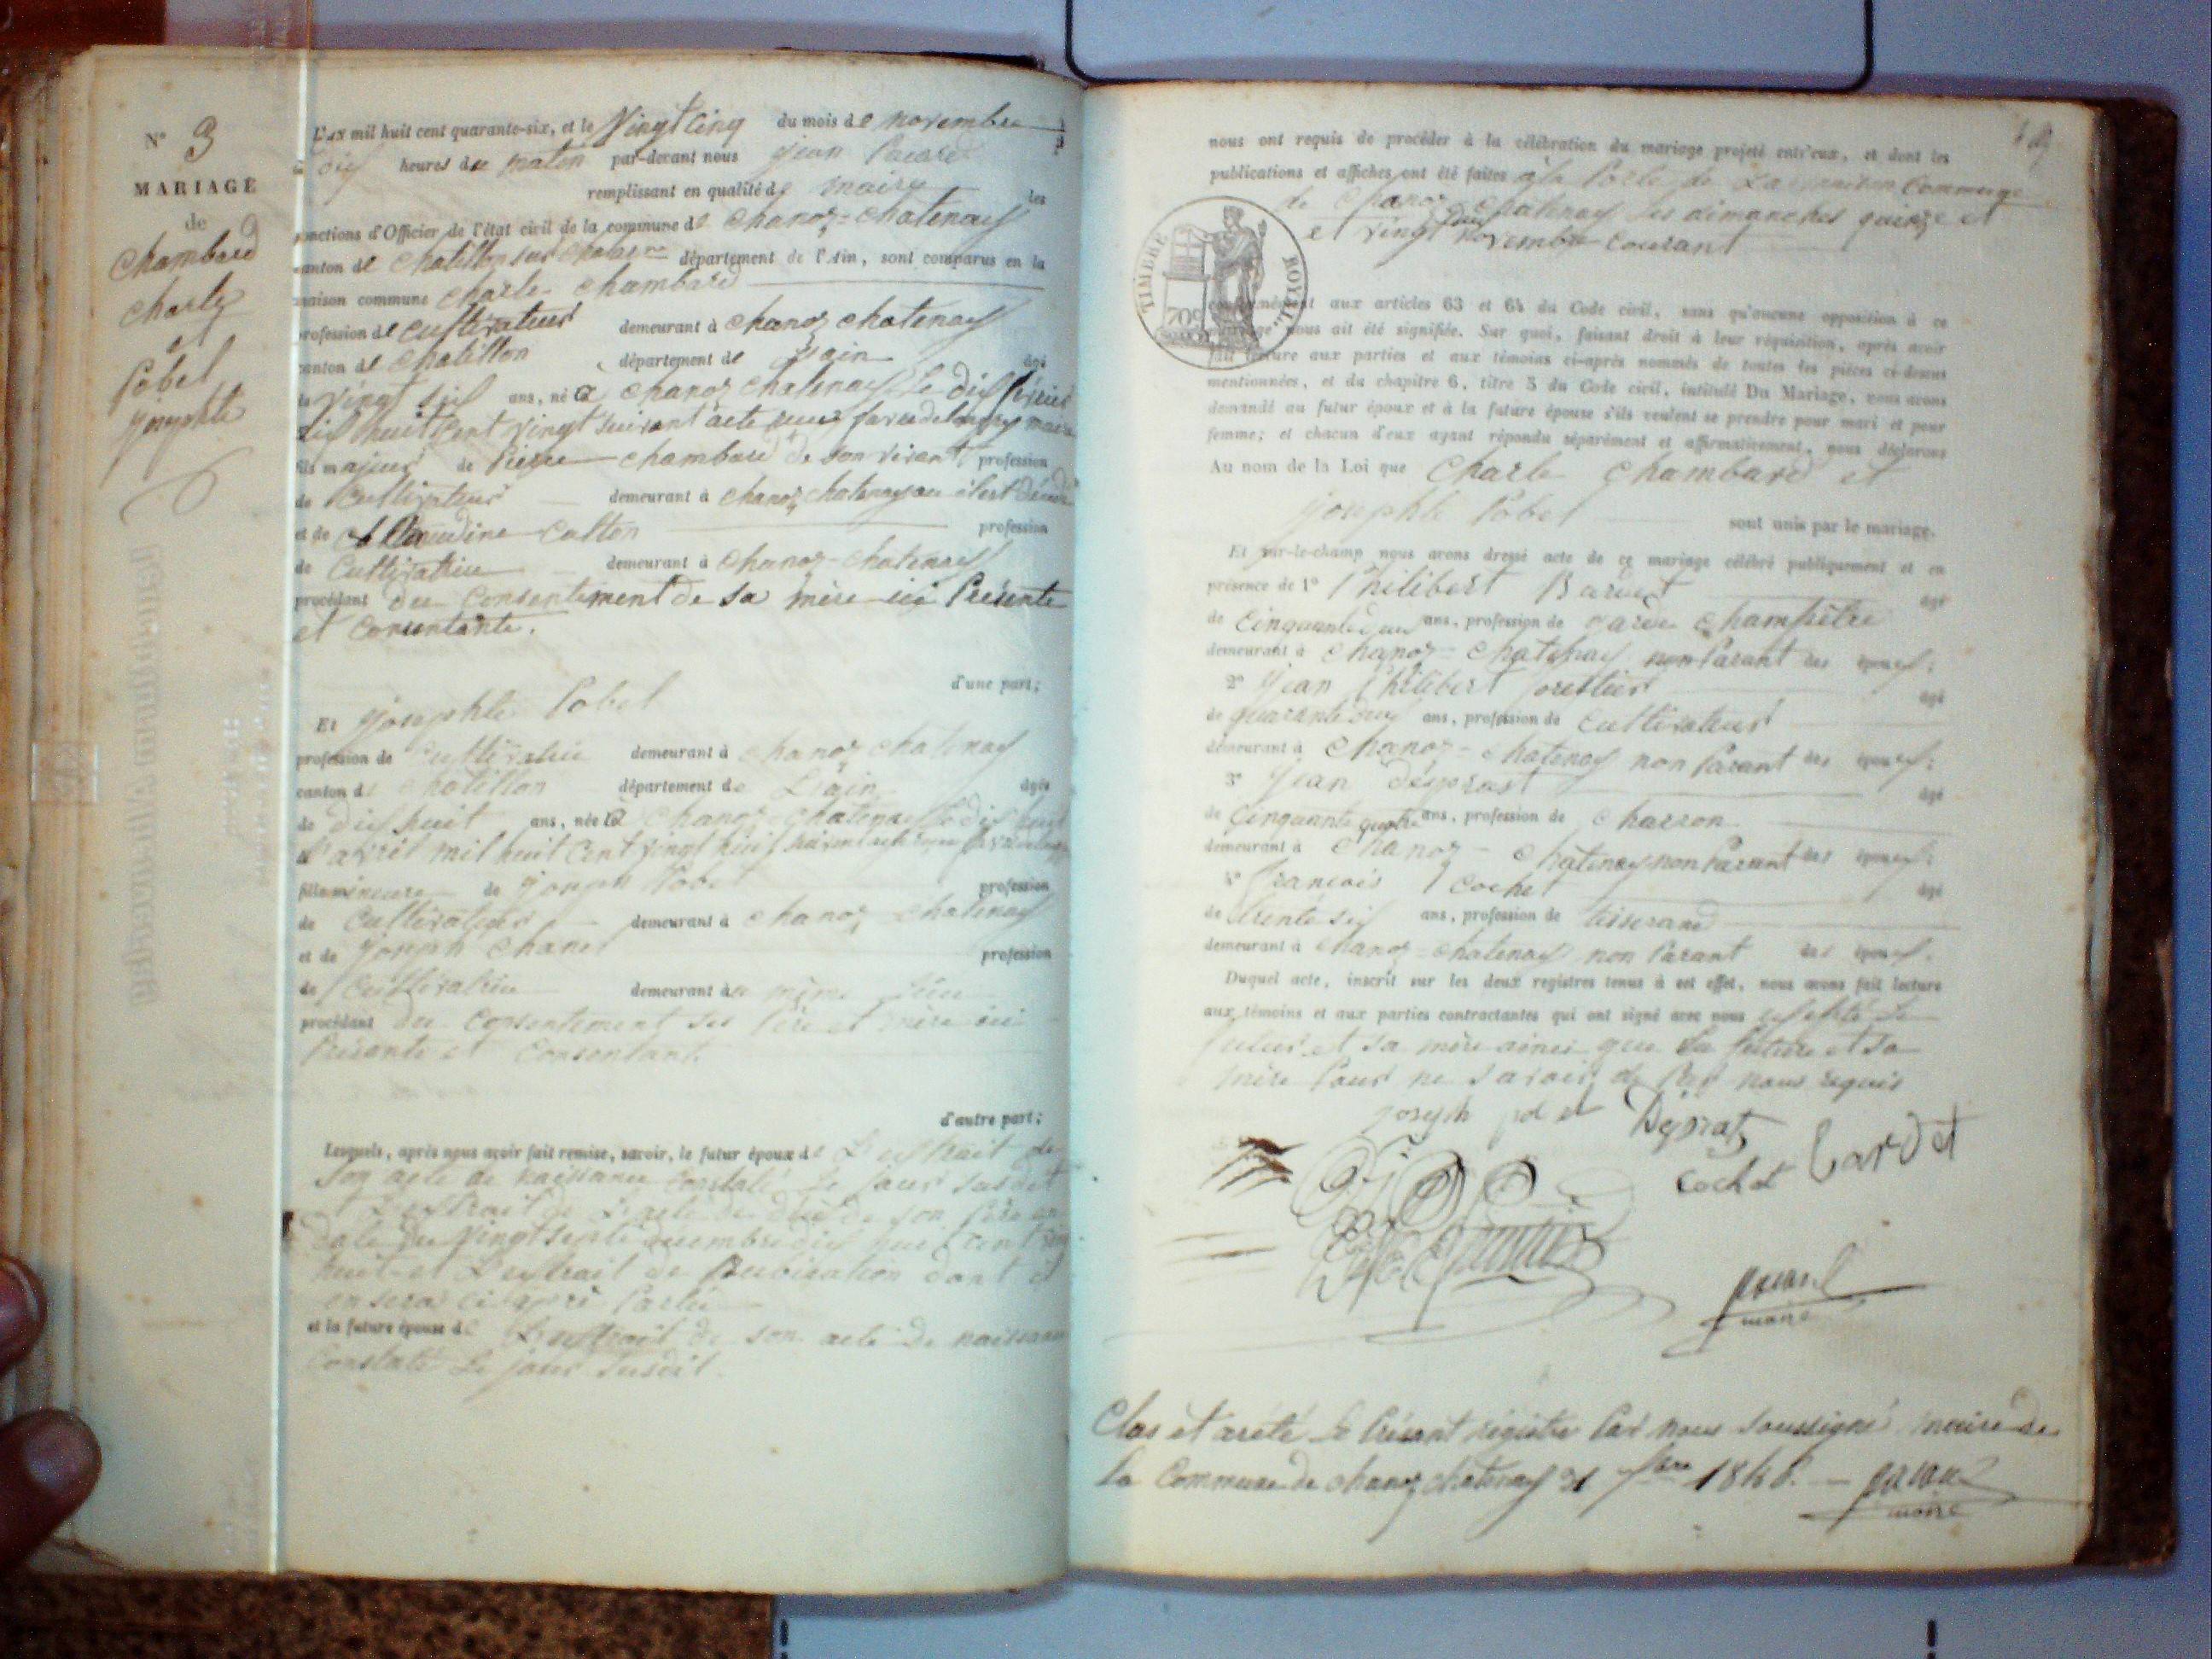 N° 3
MARIAGE
de
Chambard
Charle
et
Pobel
josephte
L'AN mil huit cent quarante-six, et le Vingt cinq du mois de novembre
à dix heures du matin par-devant nous jean
remplissant en qualité de maire les
fonctions d'Officier de l'état civil de la commune de Chanoz-Chatenay
canton de Chatillon sur Chalaronne département de l'Ain, sont comparus en la
maison commune Charle Chambard
profession de cultivateur demeurant à Chanoz Chatenay
canton de Chatillon département de l'ain âgé
de vingt six ans, né à Chanoz Chatenay le dix
dix huit cent vingt suivant acte
fils majeur de Pierre Chambard de son vivant profession
de Cultivateur demeurant à Chanoz Chatenay ou il est décédé
et de Claudine Catton profession
de Cultivatrice demeurant à Chanoz-Chatenay
procédant du Consentement de sa mère ici Présente
et Consentante.
d'une part;
Et josephte Pobel
profession de cultivatrice demeurant à Chanoz Chatenay
canton de Chatillon département de L'ain âgée
de dix huit ans, née à Chanoz Chatenay le dix huit
d'avril mil huit Cent vingt huit
fille mineure de joseph Pobel profession
de Cultivateur demeurant à Chanoz Chatenay
et de joseph Chanel profession
de Cultivatrice demeurant au même lieu
procédant du Consentement ses Père et mère ici
Présante et Consentant.
d'autre part;
Lesquels, après nous avoir fait remise, savoir, le futur époux de L'extrait de
son acte de naissance Constaté le jour susdit
et L'extrait de L'acte de décè de son Père en
date du Vingt sept décembre dix huit cent vingt
huit et L'extrait de Publication dont il
en sera ci après Parlé
et la future épouse de L'extrait de son acte de naissance
Constaté le jour susdit.
nous ont requis de procéder à la célébration du mariage projeté entr'eux, et dont les
publications et affiches ont été faites à la Porte de La maison Commune
de Chanoz Chatenay les dimanches quinze et
et vingt deux novembre courant
TIMBRE ROYAL.
70c
conformément aux articles 63 et 64 du Code civil, sans qu'aucune opposition à ce
mariage nous ait été signifiée. Sur quoi, faisant droit à leur réquisition, après avoir
fait lecture aux parties et aux témoins ci-après nommés de toutes les pièces ci-dessus
mentionnées, et du chapitre 6, titre 5 du Code civil, intitulé Du Mariage, nous avons
demandé au futur époux et à la future épouse s'ils veulent se prendre pour mari et pour
femme; et chacun d'eux ayant répondu séparément et affirmativement, nous déclarons
Au nom de la Loi que Charle Chambard et
josephte Pobel sont unis par le mariage.
Et sur-le-champ nous avons dressé acte de ce mariage célébré publiquement et en
présence de 1° Philibert âgé
de Cinquante deux ans, profession de garde Champêtre
demeurant à Chanoz-Chatenay non Parant des époux;
2° jean Philibert forestier âgé
de quarante deux ans, profession de Cultivateur
demeurant à Chanoz-Chatenay non Parant des époux;
3° jean desprast âgé
de Cinquante quatre ans, profession de Charron
demeurant à Chanoz-Chatenay non Parant des époux;
4° françois Cochet âgé
de trente six ans, profession de tisserand
demeurant à Chanoz-Chatenay non Parant des époux.
Duquel acte, inscrit sur les deux registres tenus à cet effet, nous avons fait lecture
aux témoins et aux parties contractantes qui ont signé avec nous excepté le
futur et sa mère ainsi que La future et sa
mère Pour ne savoir de Par nous requis
joseph
Cochet
maire
Clos et areté le Présent régistre Par nous soussigné maire de
la Commune de Chanoz Chatenay 31
maire